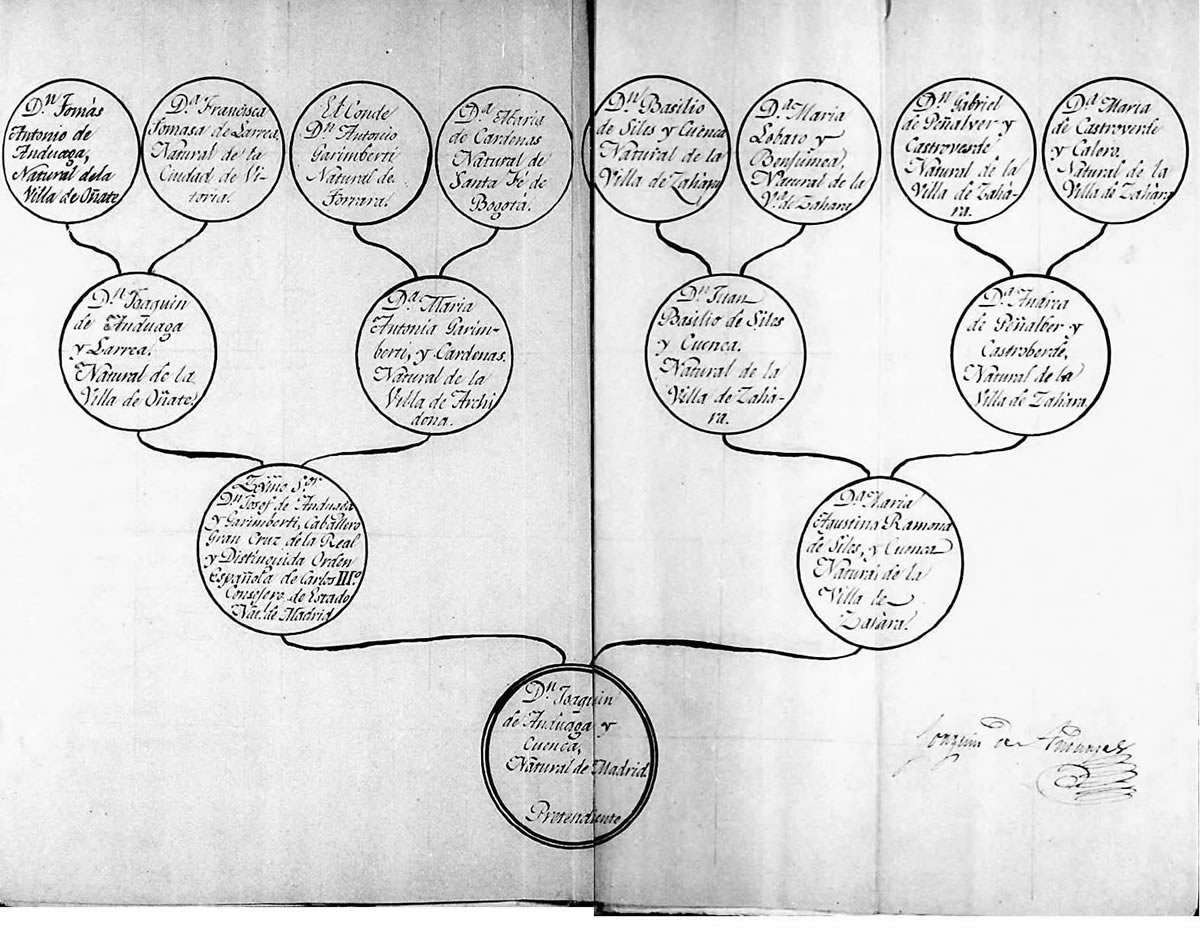 D.ⁿ Tomàs
Antonio de
Anduaga,
Natural de la
Villa de Oñate
D.ª Francisca
Tomasa de Larrea,
Natural de la
Ciudad de Vi-
toria.
El Conde
D.ⁿ Antonio
Garimberti
Natural de
Forrara.
D.ª Maria
de Cardenas
Natural de
Santa Fé de
Bogotá.
D.ⁿ Basilio
de Siles y Cuenca
Natural de la
Villa de Zahara
D.ª Maria
Lobato y
Benjumea,
Natural de la
V.ª de Zahara
D.ⁿ Gabriel
de Peñalver y
Castroverde
Natural de la
Villa de Zahà-
ra.
D.ª Maria
de Castroverde
y Calero.
Natural de la
Villa de Zahàra
D.ⁿ Joaquin
de Anduaga
y Larrea.
Natural de la
Villa de Oñate.
D.ª Maria
Antonia Garim-
berti, y Cardenas.
Natural de la
Villa de Archi
dona.
D.ⁿ Juan
Basilio de Siles
y Cuenca.
Natural de la
Villa de Zahà-
ra.
D.ª Andrea
de Peñalber y
Castroberde,
Natural de la
Villa de Zahàra.
S.ᵒʳ
D.ⁿ Josef de Anduaga
y Garimberti, Caballero
Gran Cruz de la Real
y Distinguida Orden
Española de Carlos III.º
Consejero de Estado
Nat.ˡ de Madrid
D.ª Maria
Agustina Ramona
de Siles, y Cuenca
Natural de la
Villa de
Zaàra.
D.ⁿ Joaquin
de Anduaga y
Cuenca,
Natural de Madrid.
Pretendiente
Joaquin de Anduaga